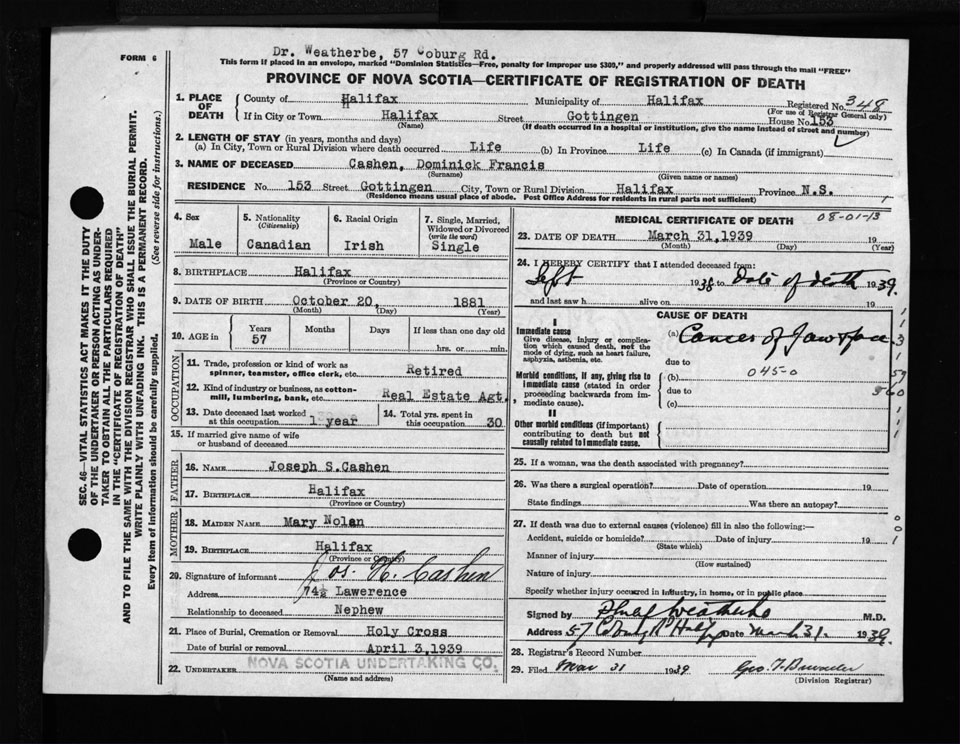 Dr. Weatherbe, 57 Coburg Rd.
FORM 6
This form if placed in an envelope, marked "Dominion Statistics—Free, penalty for improper use $300," and properly addressed will pass through the mail "FREE"
PROVINCE OF NOVA SCOTIA—CERTIFICATE OF REGISTRATION OF DEATH
1. PLACE OF DEATH
County of Halifax Municipality of Halifax Registered No. 348
(For use of Registrar General only)
If in City or Town Halifax Street Gottingen House No. 153
(Name) (If death occurred in a hospital or institution, give the name instead of street and number)
2. LENGTH OF STAY (in years, months and days)
(a) In City, Town or Rural Division where death occurred Life (b) In Province Life (c) In Canada (if immigrant)
3. NAME OF DECEASED Cashen, Dominick Francis
(Surname) (Given name or names)
RESIDENCE No. 153 Street Gottingen City, Town or Rural Division Halifax Province N.S.
(Residence means usual place of abode. Post Office Address for residents in rural parts not sufficient)
4. Sex
Male
5. Nationality
(Citizenship)
Canadian
6. Racial Origin
Irish
7. Single, Married, Widowed or Divorced
(write the word)
Single
8. BIRTHPLACE Halifax
(Province or Country)
9. DATE OF BIRTH October 20, 1881
(Month) (Day) (Year)
10. AGE in
Years Months Days If less than one day old
57 hrs. or min.
OCCUPATION
11. Trade, profession or kind of work as spinner, teamster, office clerk, etc. Retired
12. Kind of industry or business, as cotton-mill, lumbering, bank, etc. Real Estate Agt.
13. Date deceased last worked at this occupation 1 year
14. Total yrs. spent in this occupation 30
15. If married give name of wife or husband of deceased
FATHER
16. NAME Joseph S. Cashen
17. BIRTHPLACE Halifax
(Province or Country)
MOTHER
18. MAIDEN NAME Mary Nolan
19. BIRTHPLACE Halifax
(Province or Country)
20. Signature of informant Jos. N. Cashen
Address 74½ Lawerence
Relationship to deceased Nephew
21. Place of Burial, Cremation or Removal Holy Cross
Date of burial or removal April 3, 1939
22. UNDERTAKER NOVA SCOTIA UNDERTAKING CO.
(Name and address)
MEDICAL CERTIFICATE OF DEATH 08-01-13
23. DATE OF DEATH March 31, 1939 19
(Month) (Day) (Year)
24. I HEREBY CERTIFY that I attended deceased from:
Sept 1938 to Date of death 1939.
and last saw h alive on 19
CAUSE OF DEATH
I
Immediate cause
Give disease, injury or complication which caused death, not the mode of dying, such as heart failure, asphyxia, asthenia, etc.
(a) Cancer of Jaw & face
due to
Morbid conditions, if any, giving rise to immediate cause (stated in order proceeding backwards from immediate cause).
(b) 045-0
due to
(c)
II
Other morbid conditions (if important) contributing to death but not causally related to immediate cause.
25. If a woman, was the death associated with pregnancy?
26. Was there a surgical operation? Date of operation 19
State findings Was there an autopsy?
27. If death was due to external causes (violence) fill in also the following:—
Accident, suicide or homicide? Date of injury 19
(State which)
Manner of injury
(How sustained)
Nature of injury
Specify whether injury occurred in industry, in home, or in public place
Signed by Philip Weatherbe M.D.
Address 57 Coburg Rd Halifax Date March 31. 1939.
28. Registrar's Record Number
29. Filed Mar 31 1939
(Division Registrar)
SEC. 46—VITAL STATISTICS ACT MAKES IT THE DUTY
OF THE UNDERTAKER OR PERSON ACTING AS UNDER-
TAKER TO OBTAIN ALL THE PARTICULARS REQUIRED
IN THE "CERTIFICATE OF REGISTRATION OF DEATH"
AND TO FILE THE SAME WITH THE DIVISION REGISTRAR WHO SHALL ISSUE THE BURIAL PERMIT.
WRITE PLAINLY WITH UNFADING INK. THIS IS A PERMANENT RECORD.
Every item of information should be carefully supplied. (See reverse side for instructions.)